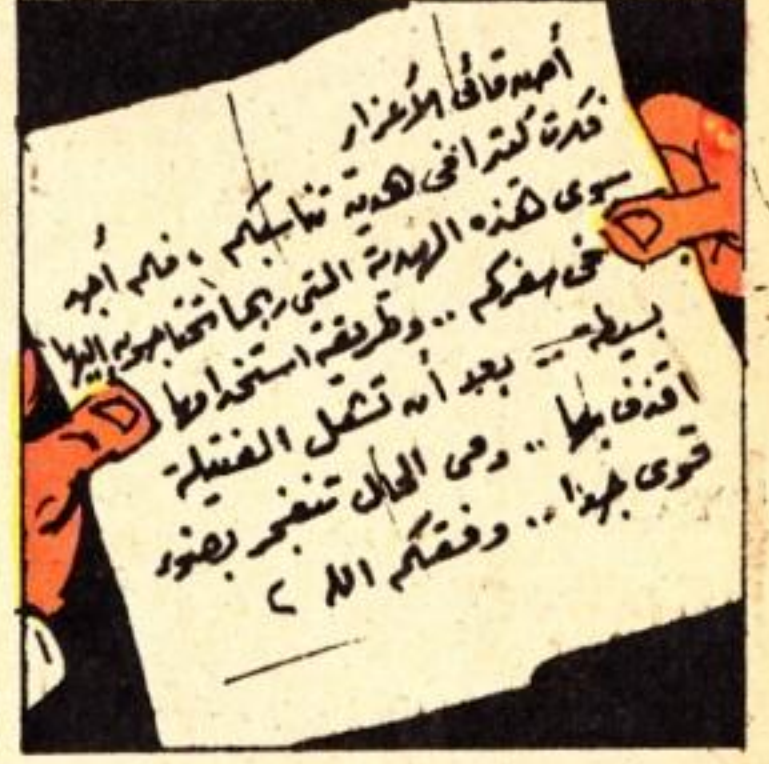 أصدقائى الأعزاء
فكرت كثيرا فى هدية تناسبكم ، فلم أجد
سوى هذه الهدية التى ربما تحتاجون إليها
فى سفركم .. وطريقة استخدامها
بسيطة - بعد أن تشعل الفتيلة
اقذف بها .. وفى الحال تنفجر بضوء
قوى جدا .. وفقكم الله